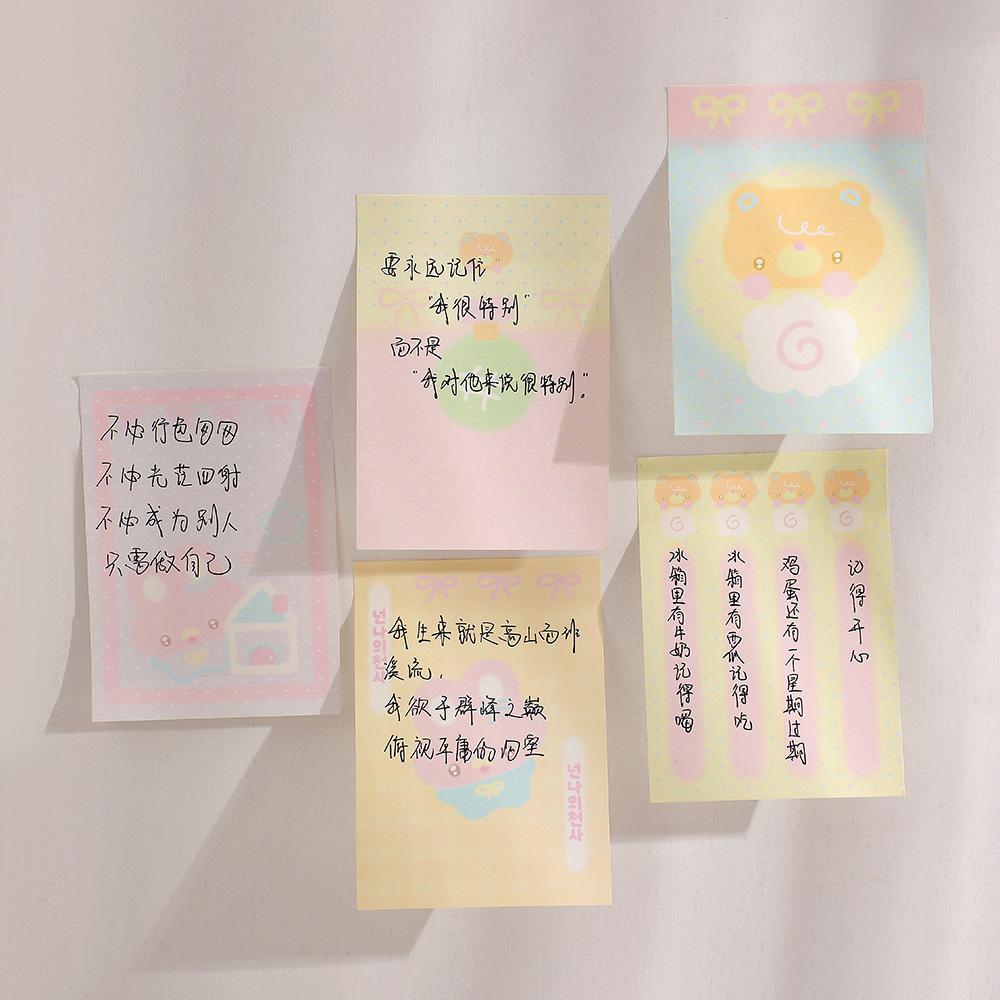 要永远记住
"我很特别"
而不是
"我对他来说很特别。"
不必行色匆匆
不必光芒四射
不必成为别人
只需做自己
我生来就是高山而非
溪流,
我欲于群峰之巅
俯视平庸的沟壑
넌나의천사
넌나의천사
冰箱里有牛奶记得喝
冰箱里有西瓜记得吃
鸡蛋还有一个星期过期
记得开心